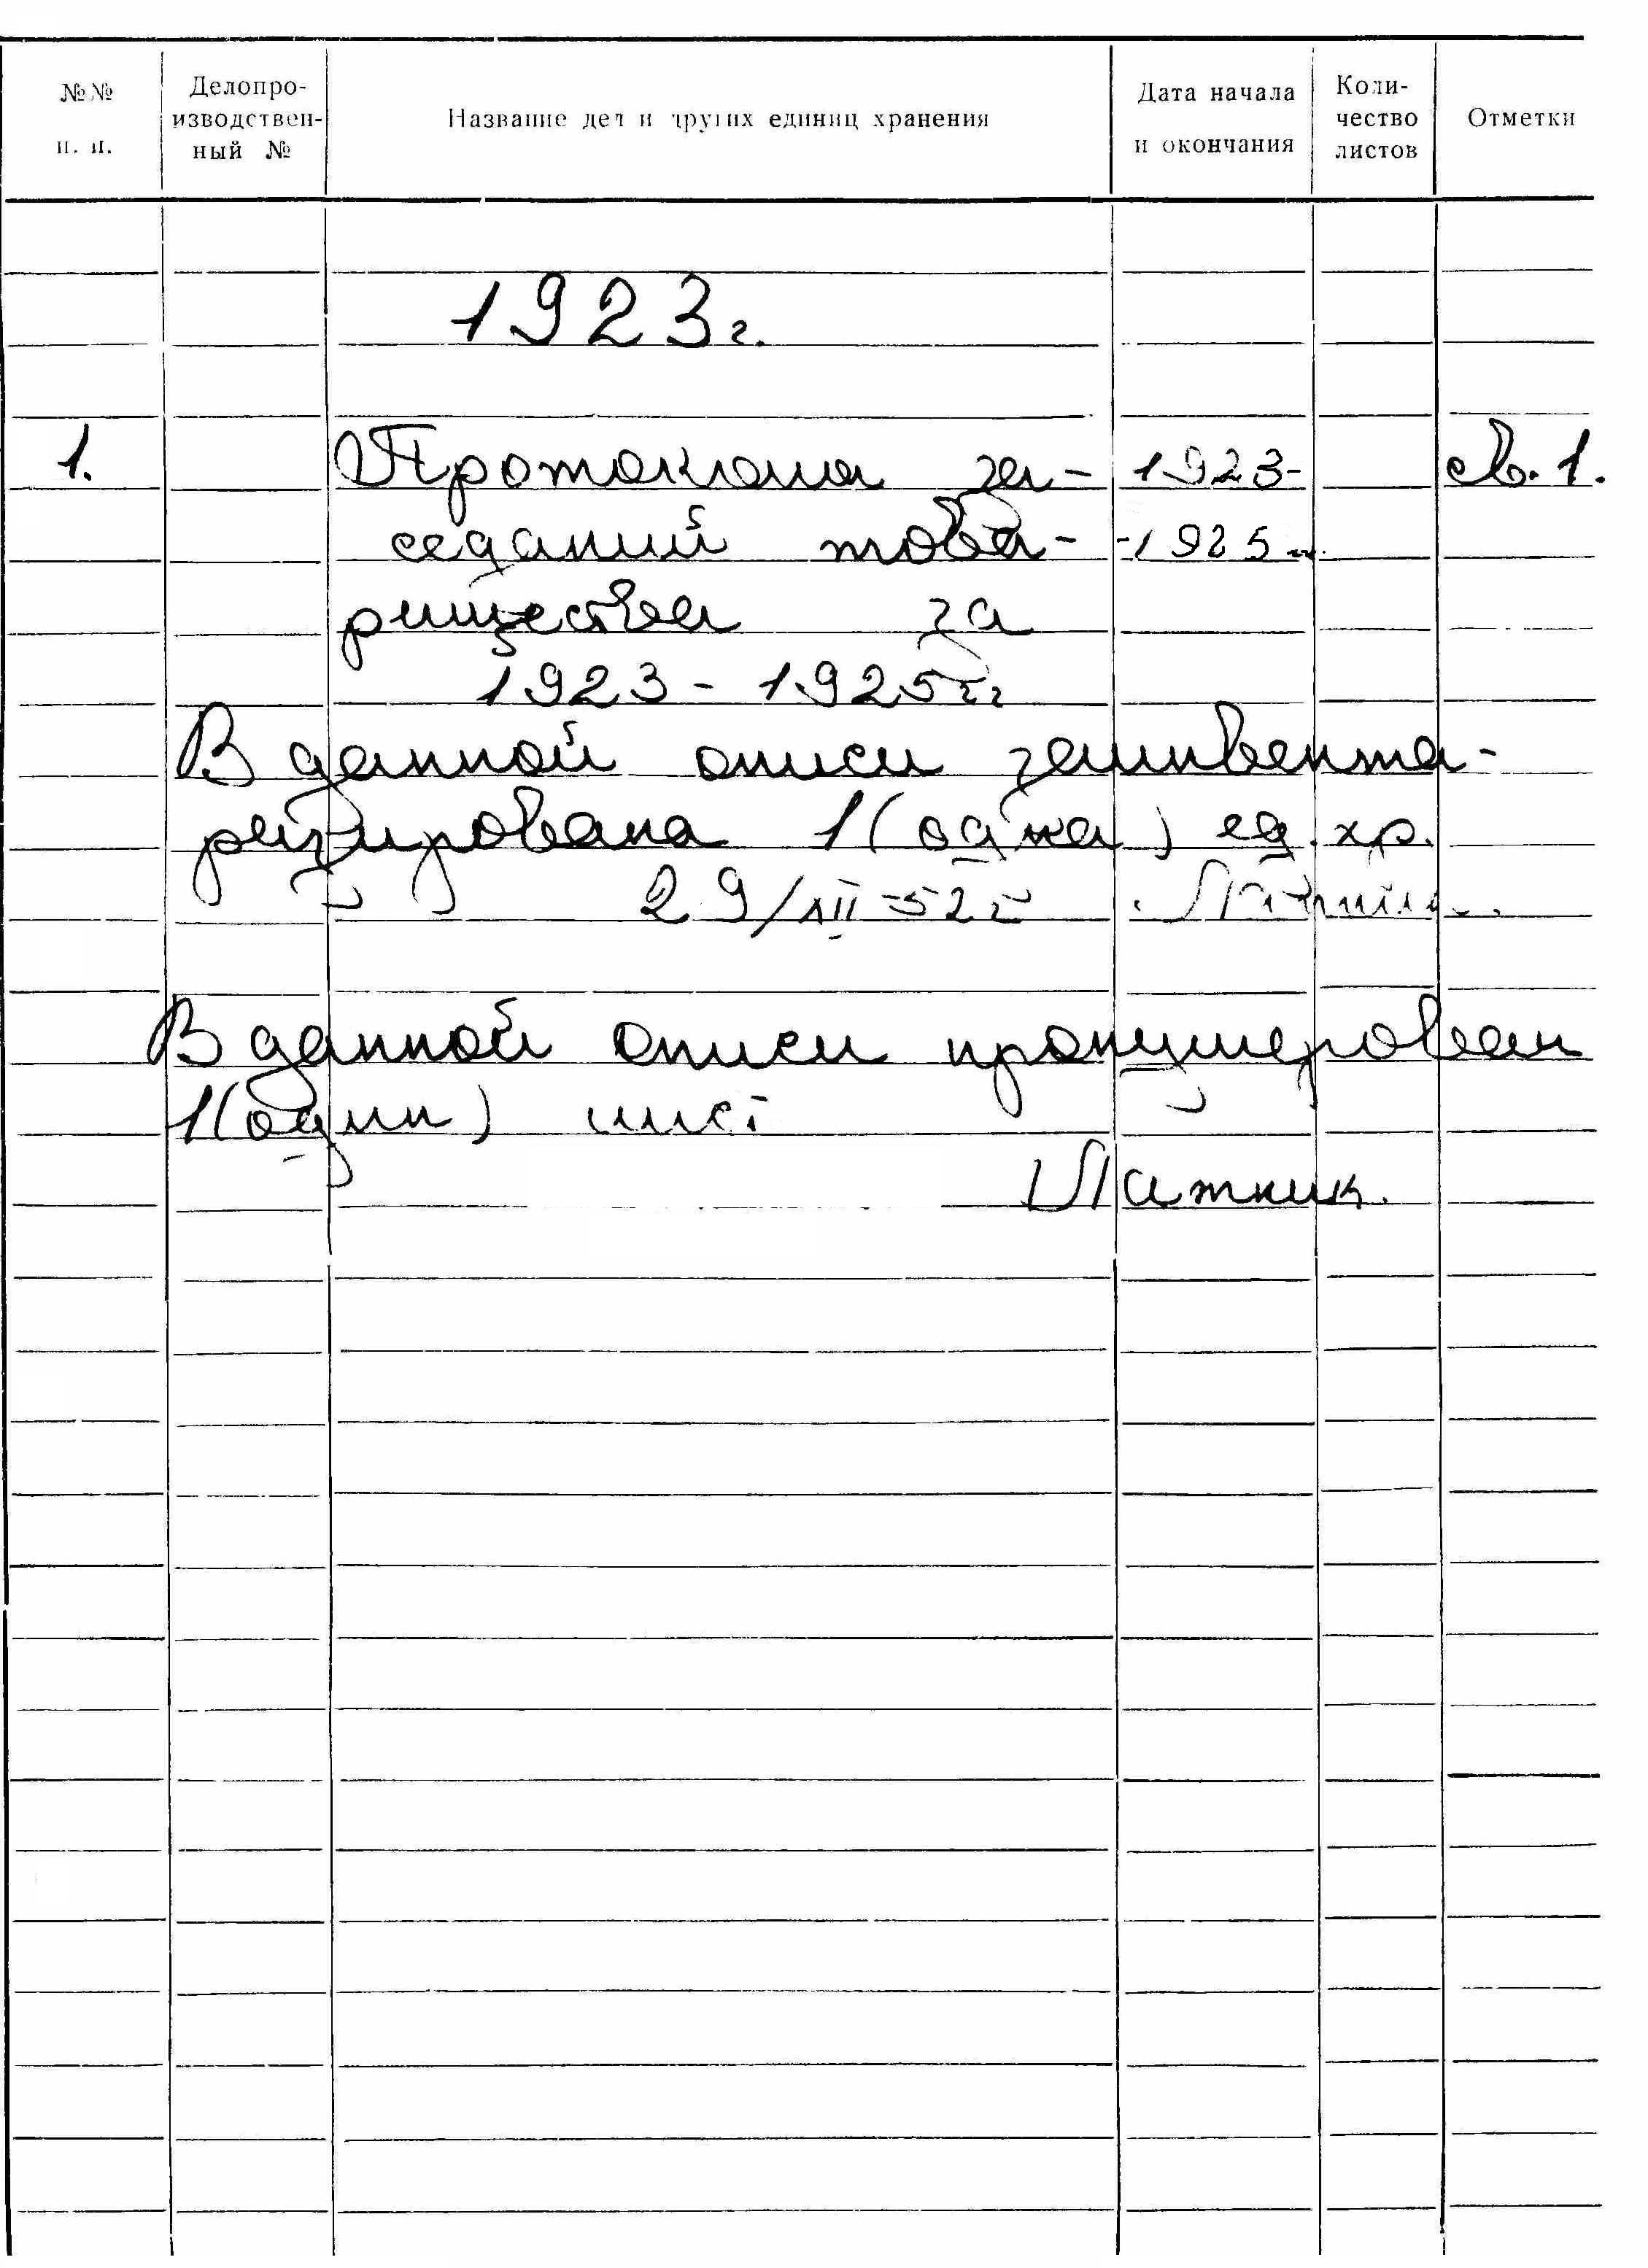 №№ п. п.
Делопро-
изводствен-
ный №
Название дел и других единиц хранения
Дата начала
и окончания
Коли-
чество
листов
Отметки
1923г.
1. Протоколы за- 1923- св. 1.
седаний това- -1925гг.
рищества за
1923-1925гг
В данной описи заинвента-
ризирована 1 (одна) ед. хр.
29/XII-52г
В данной описи пронумерован
1 (один) лист